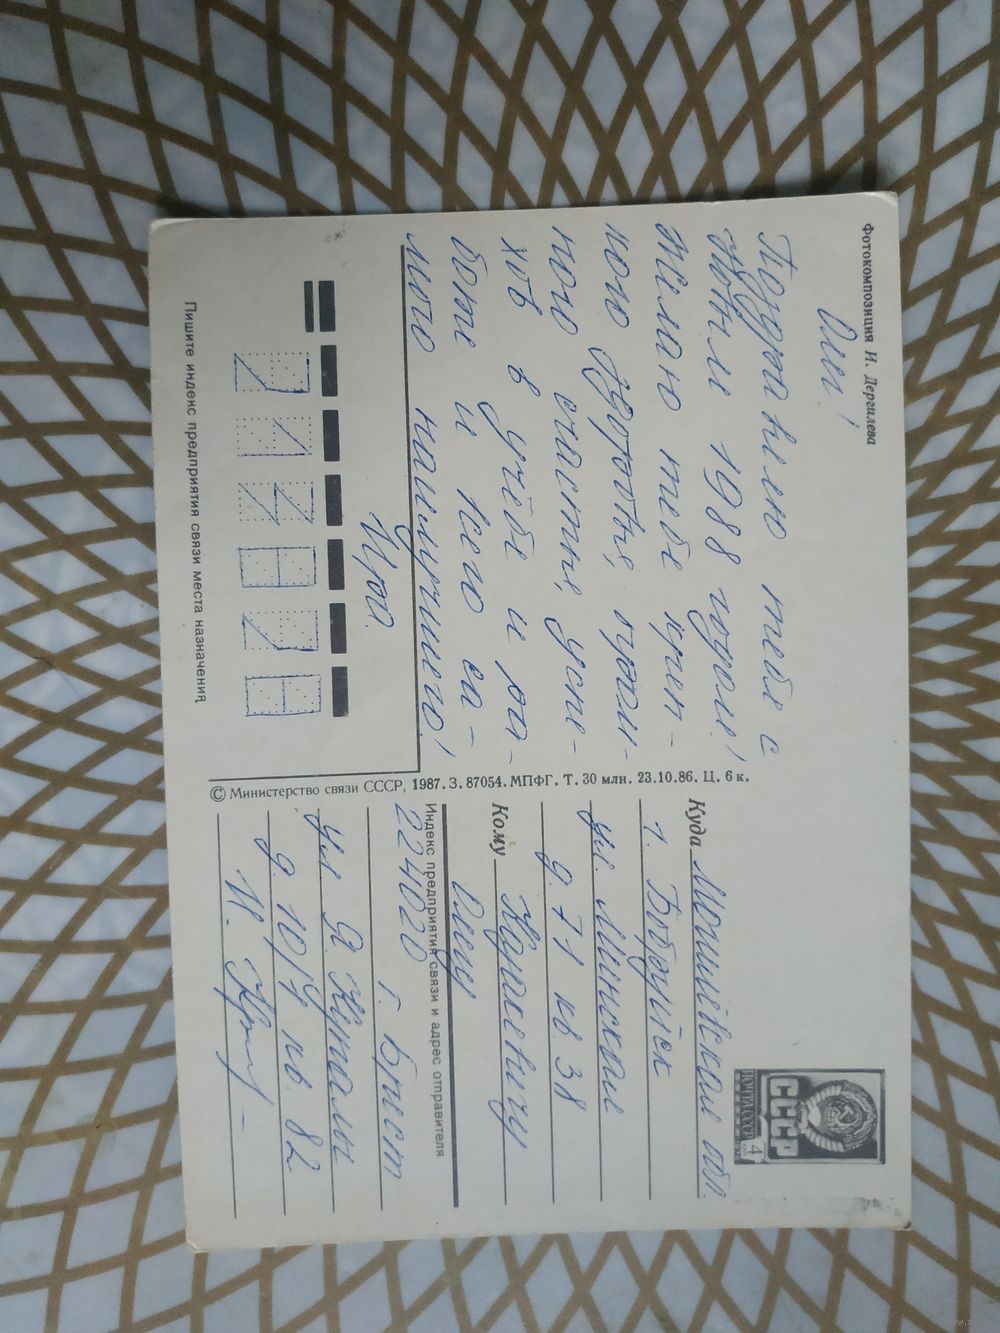 Фотокомпозиция И. Дергилева
Олег!
Поздравляю тебя с
Новым 1988 годом!
Желаю тебе креп-
кого здоровья, огром-
ного счастья, успе-
хов в учёбе и ра-
боте и всего са-
мого наилучшего!
Ира
213828
Пишите индекс предприятия связи места назначения
© Министерство связи СССР, 1987. З. 87054. МПФГ. Т. 30 млн. 23.10.86. Ц. 6 к.
ПОЧТА СССР
СССР
4
Куда Могилёвская обл.
г. Бобруйск
ул. Минская
д. 71 кв 38
Кому
Олегу
Индекс предприятия связи и адрес отправителя
224020 г. Брест
ул Я. Купалы
д. 10/4 кв. 82
И.